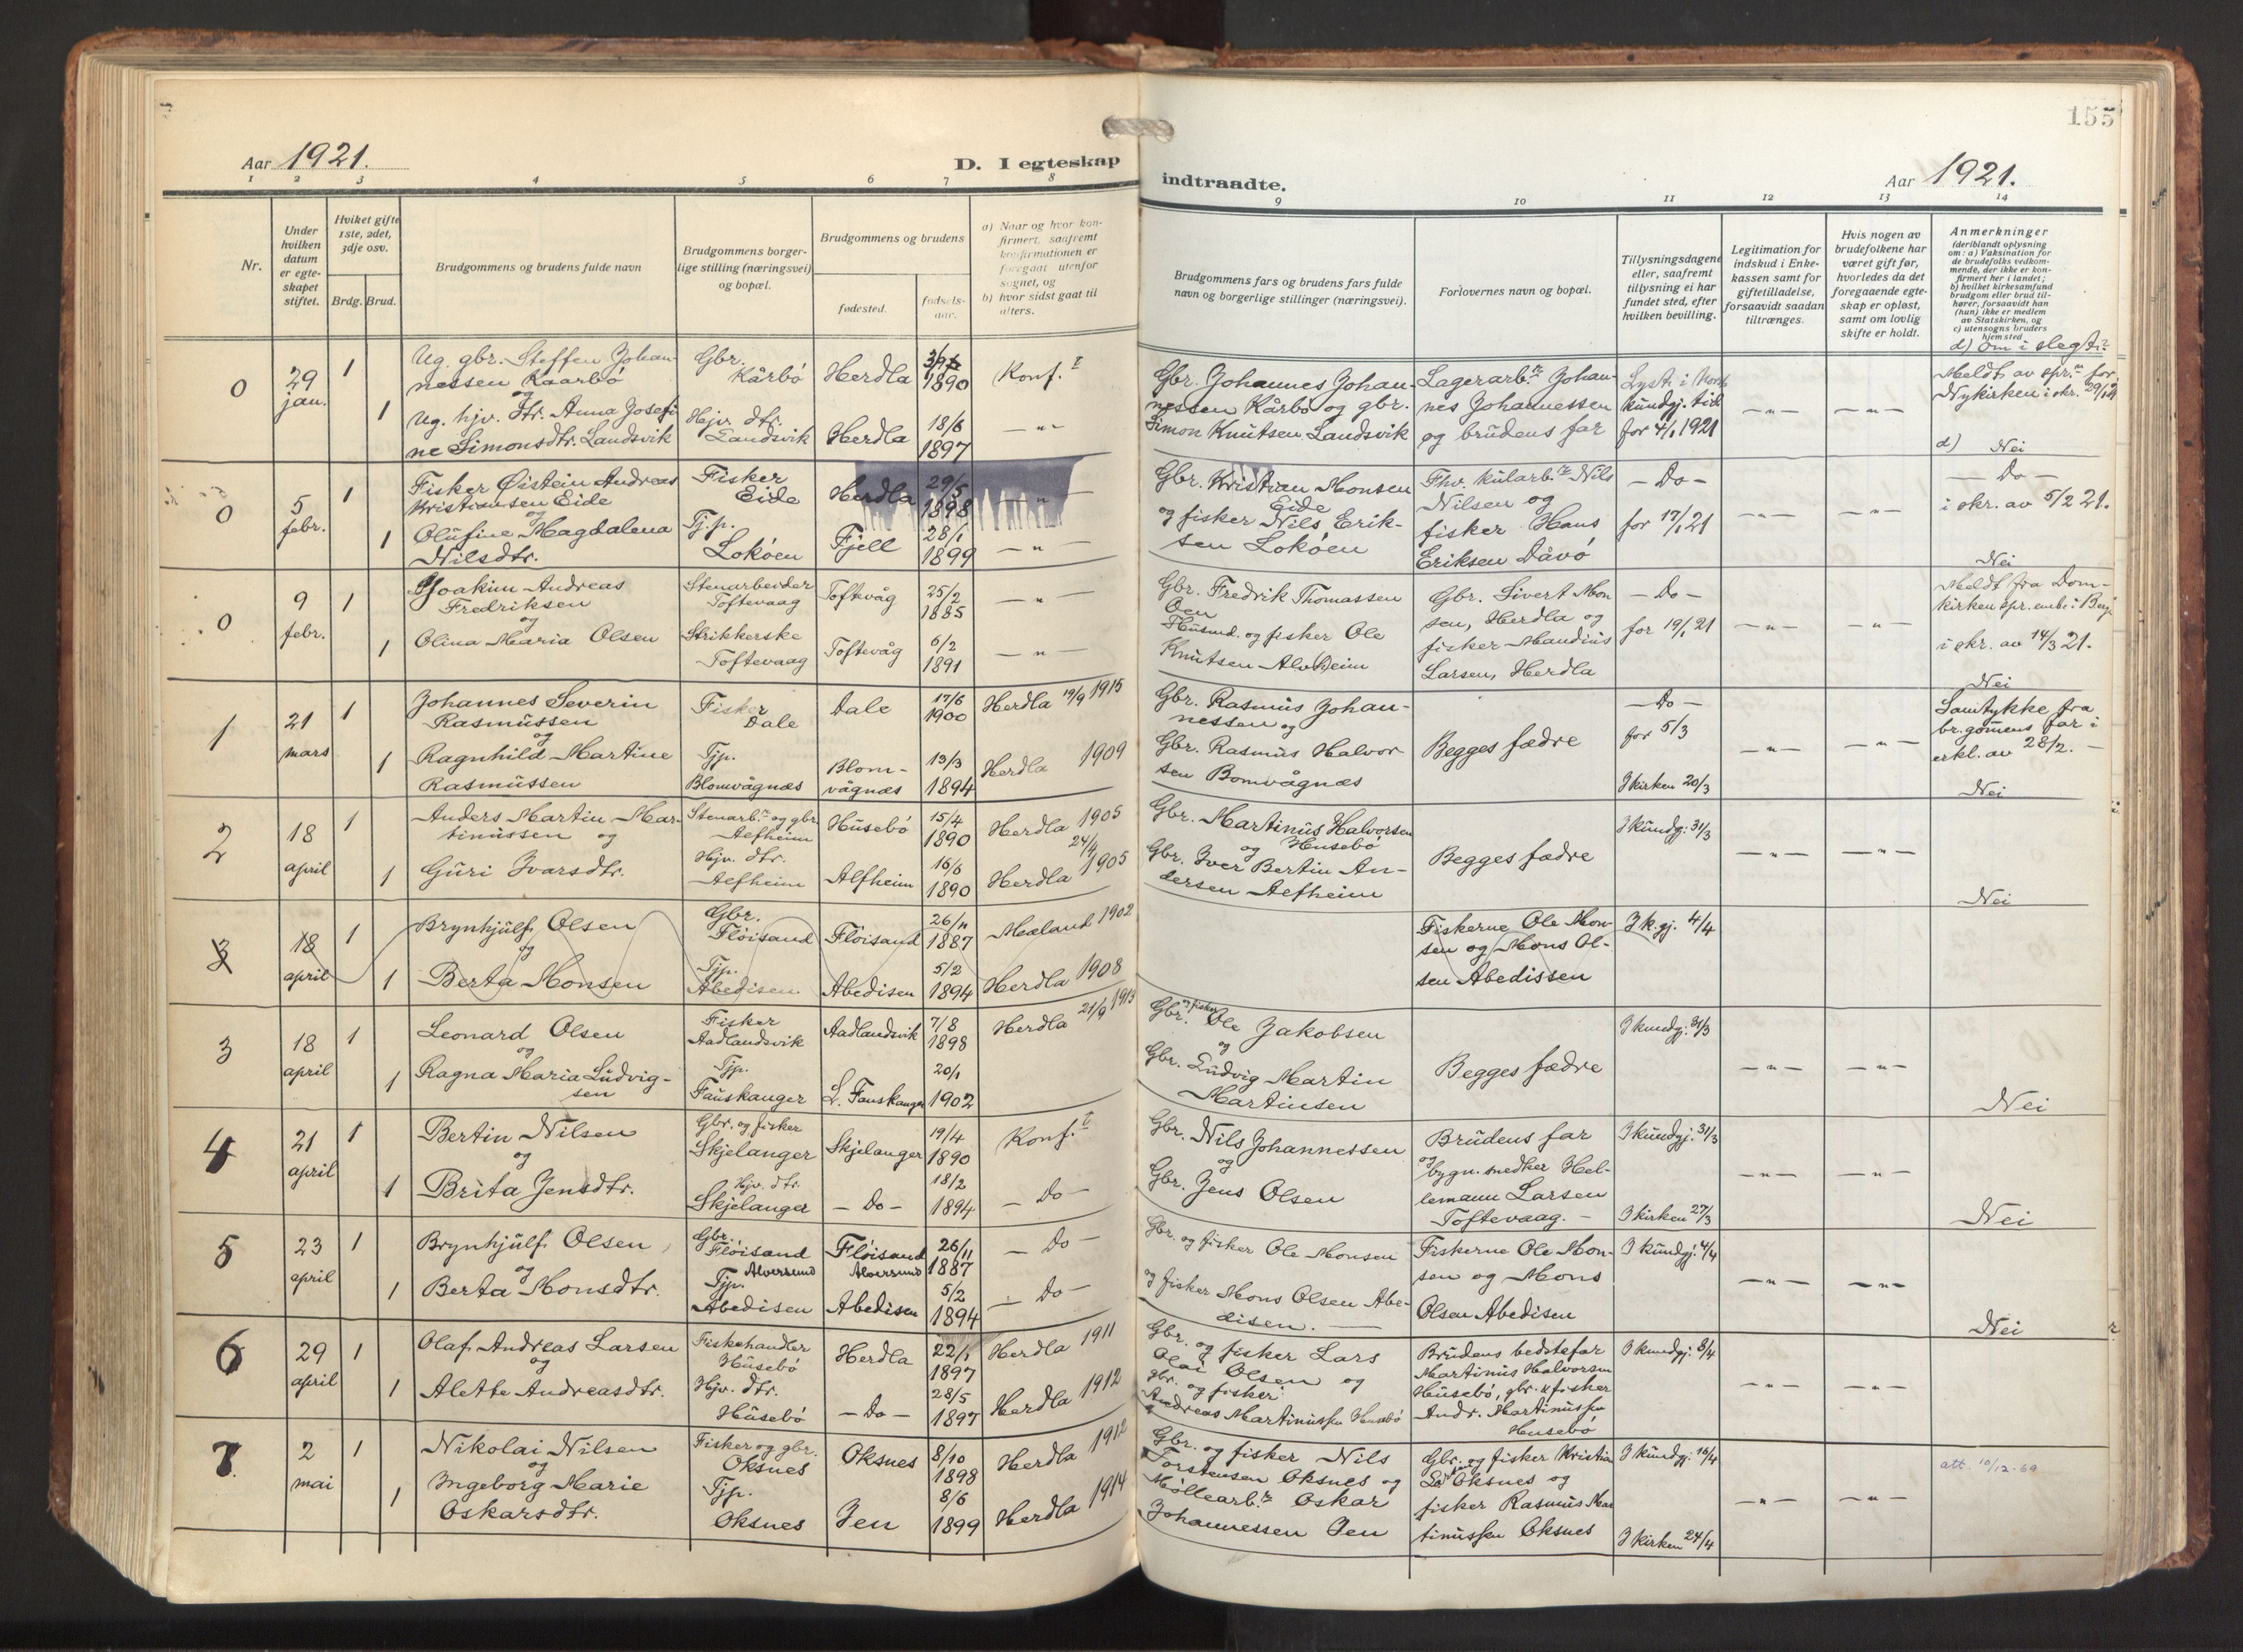 155
Aar 1921.
D. I egteskap
indtraadte.
Aar 1921.
1 2 3 4 5 6 7 8 9 10 11 12 13 14
Nr.
Under
hvilken
datum
er egte-
skapet
stiftet.
Hvilket gifte
1ste, 2det,
3dje osv.
Brdg. Brud.
Brudgommens og brudens fulde navn
Brudgommens borger-
lige stilling (næringsvei)
og bopæl.
Brudgommens og brudens
fødested.
fødsels-
aar.
a) Naar og hvor kon-
firmert, saafremt
konfirmationen er
foregaat utenfor
sognet, og
b) hvor sidst gaat til
alters.
Brudgommens fars og brudens fars fulde
navn og borgerlige stillinger (næringsvei).
Forlovernes navn og bopæl.
Tillysningsdagene
eller, saafremt
tillysning ei har
fundet sted, efter
hvilken bevilling.
Legitimation for
indskud i Enke-
kassen samt for
giftetilladelse,
forsaavidt saadan
tiltrænges.
Hvis nogen av
brudefolkene har
været gift før,
hvorledes da det
foregaaende egte-
skap er opløst,
samt om lovlig
skifte er holdt.
Anmerkninger
(deriblandt oplysning
om: a) Vaksination for
de brudefolks vedkom-
mende, der ikke er kon-
firmert her i landet;
b) hvilket kirkesamfund
brudgom eller brud til-
hører, forsaavidt han
(hun) ikke er medlem
av Statskirken, og
c) utensogns bruders
hjemsted.
d) Om i slegt?
0
29
jan.
1
1
Ug. gbr. Steffen Johan-
nessen Kaarbø
og
Ug. hjv. dtr. Anna Josefi
ne Simonsdtr. Landsvik
Gbr.
Kårbø
Hjv. dtr.
Landsvik
Herdla
Herdla
1890
18/6
1897
Konf.
— " —
Gbr. Johannes Johan-
nessen Kårbø og gbr.
Simon Knutsen Landsvik
Lagerarb. Johan-
nes Johannessen
og brudens far
Lyst i
kundgj.
for 4/1 1921
— " —
— " —
Meldt av spr. for
Nykirken i skr. 29/1 21
d) Nei
0
5
febr.
1
1
Fisker Øistein Andreas
Kristiansen Eide
og
Olufine Magdalena
Nilsdtr.
Fisker
Eide
Tj.p.
Lokøen
Herdla
Fjell
29/5
1898
28/1
1899
— " —
— " —
Gbr. Kristian Monsen
Eide
og fisker Nils Erik-
sen Lokøen
Fhv. kularb. Nils
Nilsen og
fisker Hans
Eriksen Dåvø
— Do —
for 17/1 21
— " —
— " —
— Do —
i skr. av 5/2 21.
Nei
0
9
febr.
1
1
Joakim Andreas
Fredriksen
og
Olina Maria Olsen
Stenarbeider
Toftevaag
Strikkerske
Toftevaag
Toftevåg
Toftevåg
25/2
1885
6/2
1891
— " —
— " —
Gbr. Fredrik Thomassen
Oen
Husmd. og fisker Ole
Knutsen Alvheim
Gbr. Sivert Mon
sen, Herdla og
fisker Mandius
Larsen, Herdla
— Do —
for 19/1 21
— " —
— " —
Meldt fra Dom-
kirken spr. emb. i Berg.
i skr. av 14/3 21.
Nei
1
21
mars
1
1
Johannes Severin
Rasmussen
og
Ragnhild Martine
Rasmussen
Fisker
Dale
Tjp.
Blomvågnæs
Dale
Blom-
vågnæs
17/6
1900
13/3
1894
Herdla 19/9 1915
Herdla 1909
Gbr. Rasmus Johan-
nessen og
Gbr. Rasmus Halvor
sen Bomvågnæs
Begges fædre
— Do —
for 5/3
I kirken 20/3
— " —
— " —
Samtykke fra
br.gomens far i
erkl. av 28/2. —
Nei
2
18
april
1
1
Anders Martin Mar-
tinussen og
Guri Ivarsdtr.
Stenarb. og gbr.
Aefheim
Hjv. dtr.
Aefheim
Husebø
Alfheim
15/4
1890
16/6
1890
Herdla 1905
24/4
Herdla 1905
Gbr. Martinus Halvorsen
og Husebø
Gbr. Iver Bertin An-
dersen Aefheim
Begges fædre
I kundgj. 31/3
— " —
— " —
Nei
3
18
april
1
1
Brynhjulf Olsen
og
Berta Monsen
Gbr.
Fløisand
Tjp.
Abedisen
Fløisand
Abedisen
26/11
1887
5/2
1894
Mæland 1902
Herdla 1908
Fiskerne Ole Mon-
sen og Mons Ol-
sen Abedissen
I k.gj. 4/4
3
18
april
1
1
Leonard Olsen
og
Ragna Maria Ludvig-
sen
Fisker
Aadlandsvik
Tjp.
Fauskanger
Aadlandsvik
L. Fauskanger
7/8
1898
20/1
1902
Herdla 21/9 1913
Gbr. og fisker Ole Jakobsen
og
Gbr. Ludvig Martin
Martinsen
Begges fædre
I kundgj. 31/3
— " —
— " —
Nei
4
21
april
1
1
Bertin Nilsen
og
Brita Jensdtr.
Gbr. og fisker
Skjelanger
Hjv. dtr.
Skjelanger
Skjelanger
— Do —
19/4
1890
18/2
1894
Konf.
— Do —
Gbr. Nils Johannessen
og
Gbr. Jens Olsen
Brudens far
og
bygn. snedker Hel-
lemann Larsen
Toftevaag. —
I kundgj. 31/3
I kirken 27/3
— " —
— " —
Nei
5
23
april
1
1
Brynhjulf Olsen
og
Berta Monsdtr.
Gbr.
Fløisand
Alversund
Tjp.
Abedisen
Fløisand
Alversund
Abedisen
26/11
1887
5/2
1894
— Do —
— Do —
Gbr. og fisker Ole Monsen
og fisker Mons Olsen Abe-
disen. —
Fiskerne Ole Mon-
sen og Mons
Olsen Abedisen
I kundgj. 4/4
— " —
— " —
Nei
6
29
april
1
1
Olaf Andreas Larsen
og
Alette Andreasdtr.
Fiskehandler
Husebø
Hjv. dtr.
Husebø
Herdla
— Do —
22/1
1897
28/5
1897
Herdla 1911
Herdla 1912
Gbr. og fisker Lars
Olai Olsen og
gbr. og fisker
Andreas Martinussen Husebø
Brudens bedstefar
Martinus Halvorsen
Husebø, gbr. & fisker
Andr. Martinussen
Husebø
I kundgj. 8/4
— " —
— " —
7
2
mai
1
1
Nikolai Nilsen
og
Ingeborg Marie
Oskarsdtr.
Fisker og gbr.
Oksnes
Tjp.
Oksnes
Oksnes
Jen
8/10
1898
8/6
1899
Herdla 1912
Herdla 1914
Gbr. og fisker Nils
Torstensen Oksnes og
Møllearb. Oskar
Johannessen Jen
Gbr. og fisker Kristia
Oksnes og
fisker Rasmus Mar
tinussen Oksnes
I kundgj. 16/4
I kirken 24/4
— " —
— " —
att. 10/12-69